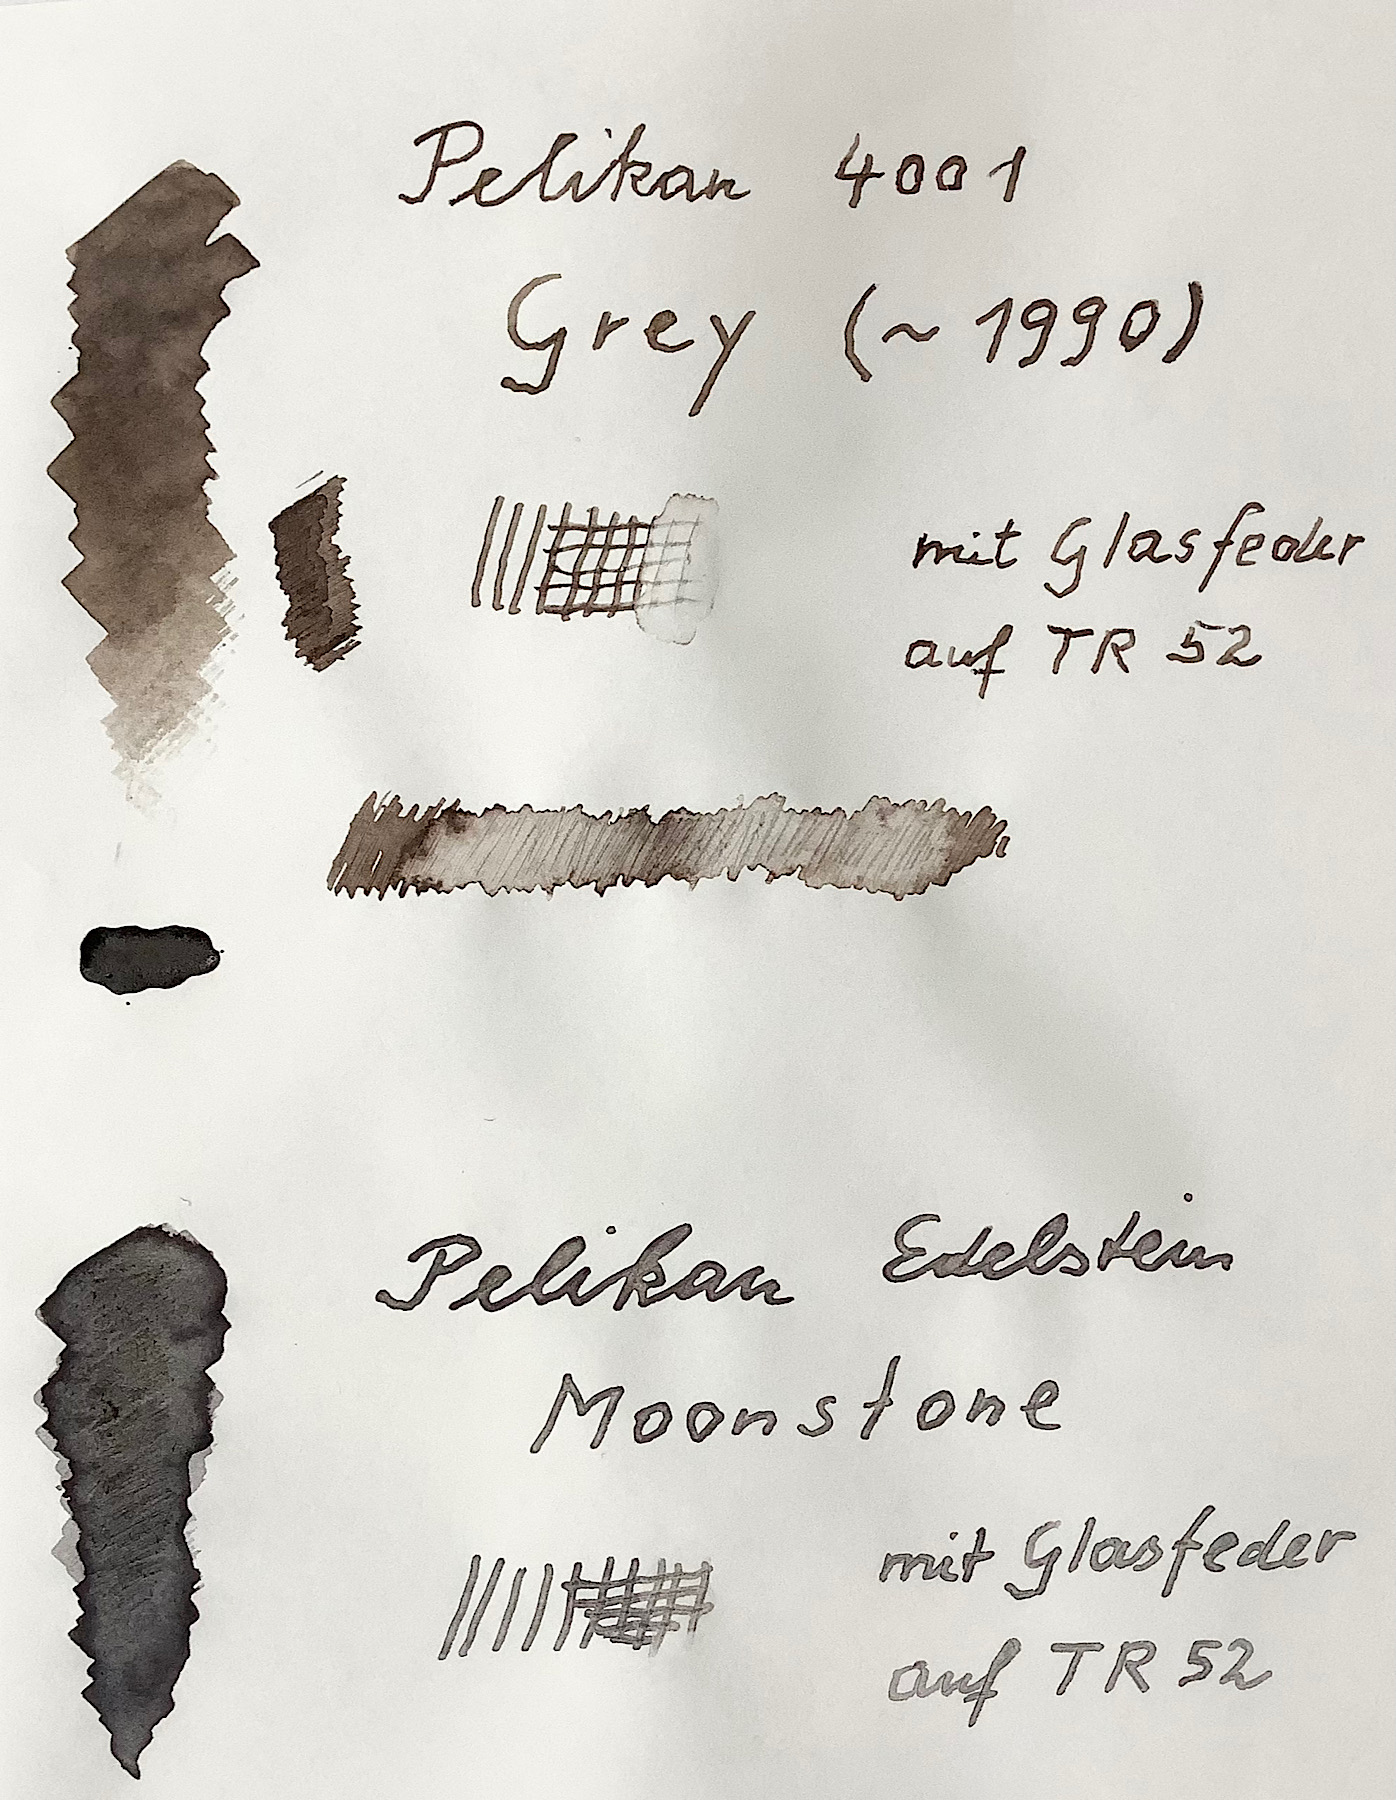 Pelikan 4001
Grey (~ 1990)
mit Glasfeder
auf TR 52
Pelikan Edelstein
Moonstone
mit Glasfeder
auf TR 52